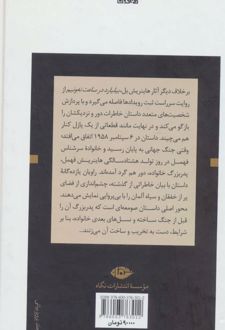 برخلاف دیگر آثار هاینریش بل، بیلیارد در ساعت نه‌ونیم از
روایت سرراست ثبت رویدادها فاصله می‌گیرد و با پردازش
شخصیت‌های متعدد داستان خاطرات دور و نزدیکشان را
بازگو می‌کند و در نهایت مانند قطعاتی از یک پازل کنار
هم می‌چیند. داستان در ۶ سپتامبر ۱۹۵۸ اتفاق می‌افتد؛
وقتی جنگ جهانی به پایان رسیده و خانواده سرشناس
فهمل در روز تولد هشتادسالگی هاینریش فهمل،
پدربزرگ خانواده، دور هم گرد آمده‌اند. راویان یازده‌گانهٔ
داستان با بیان خاطراتی از گذشته، چشم‌اندازی از فضای
پر از خفقان و سیاه آلمان را با بی‌پروایی نمایش می‌دهند.
محور اصلی داستان صومعه‌ای است که پدربزرگ آن را
قبل از جنگ ساخته و نسل‌های بعدی خانواده، بنا بر
شرایط، دست به تخریب و ساخت آن می‌زنند...
مؤسسهٔ انتشارات نگاه
۹۰۰۰۰ تومان